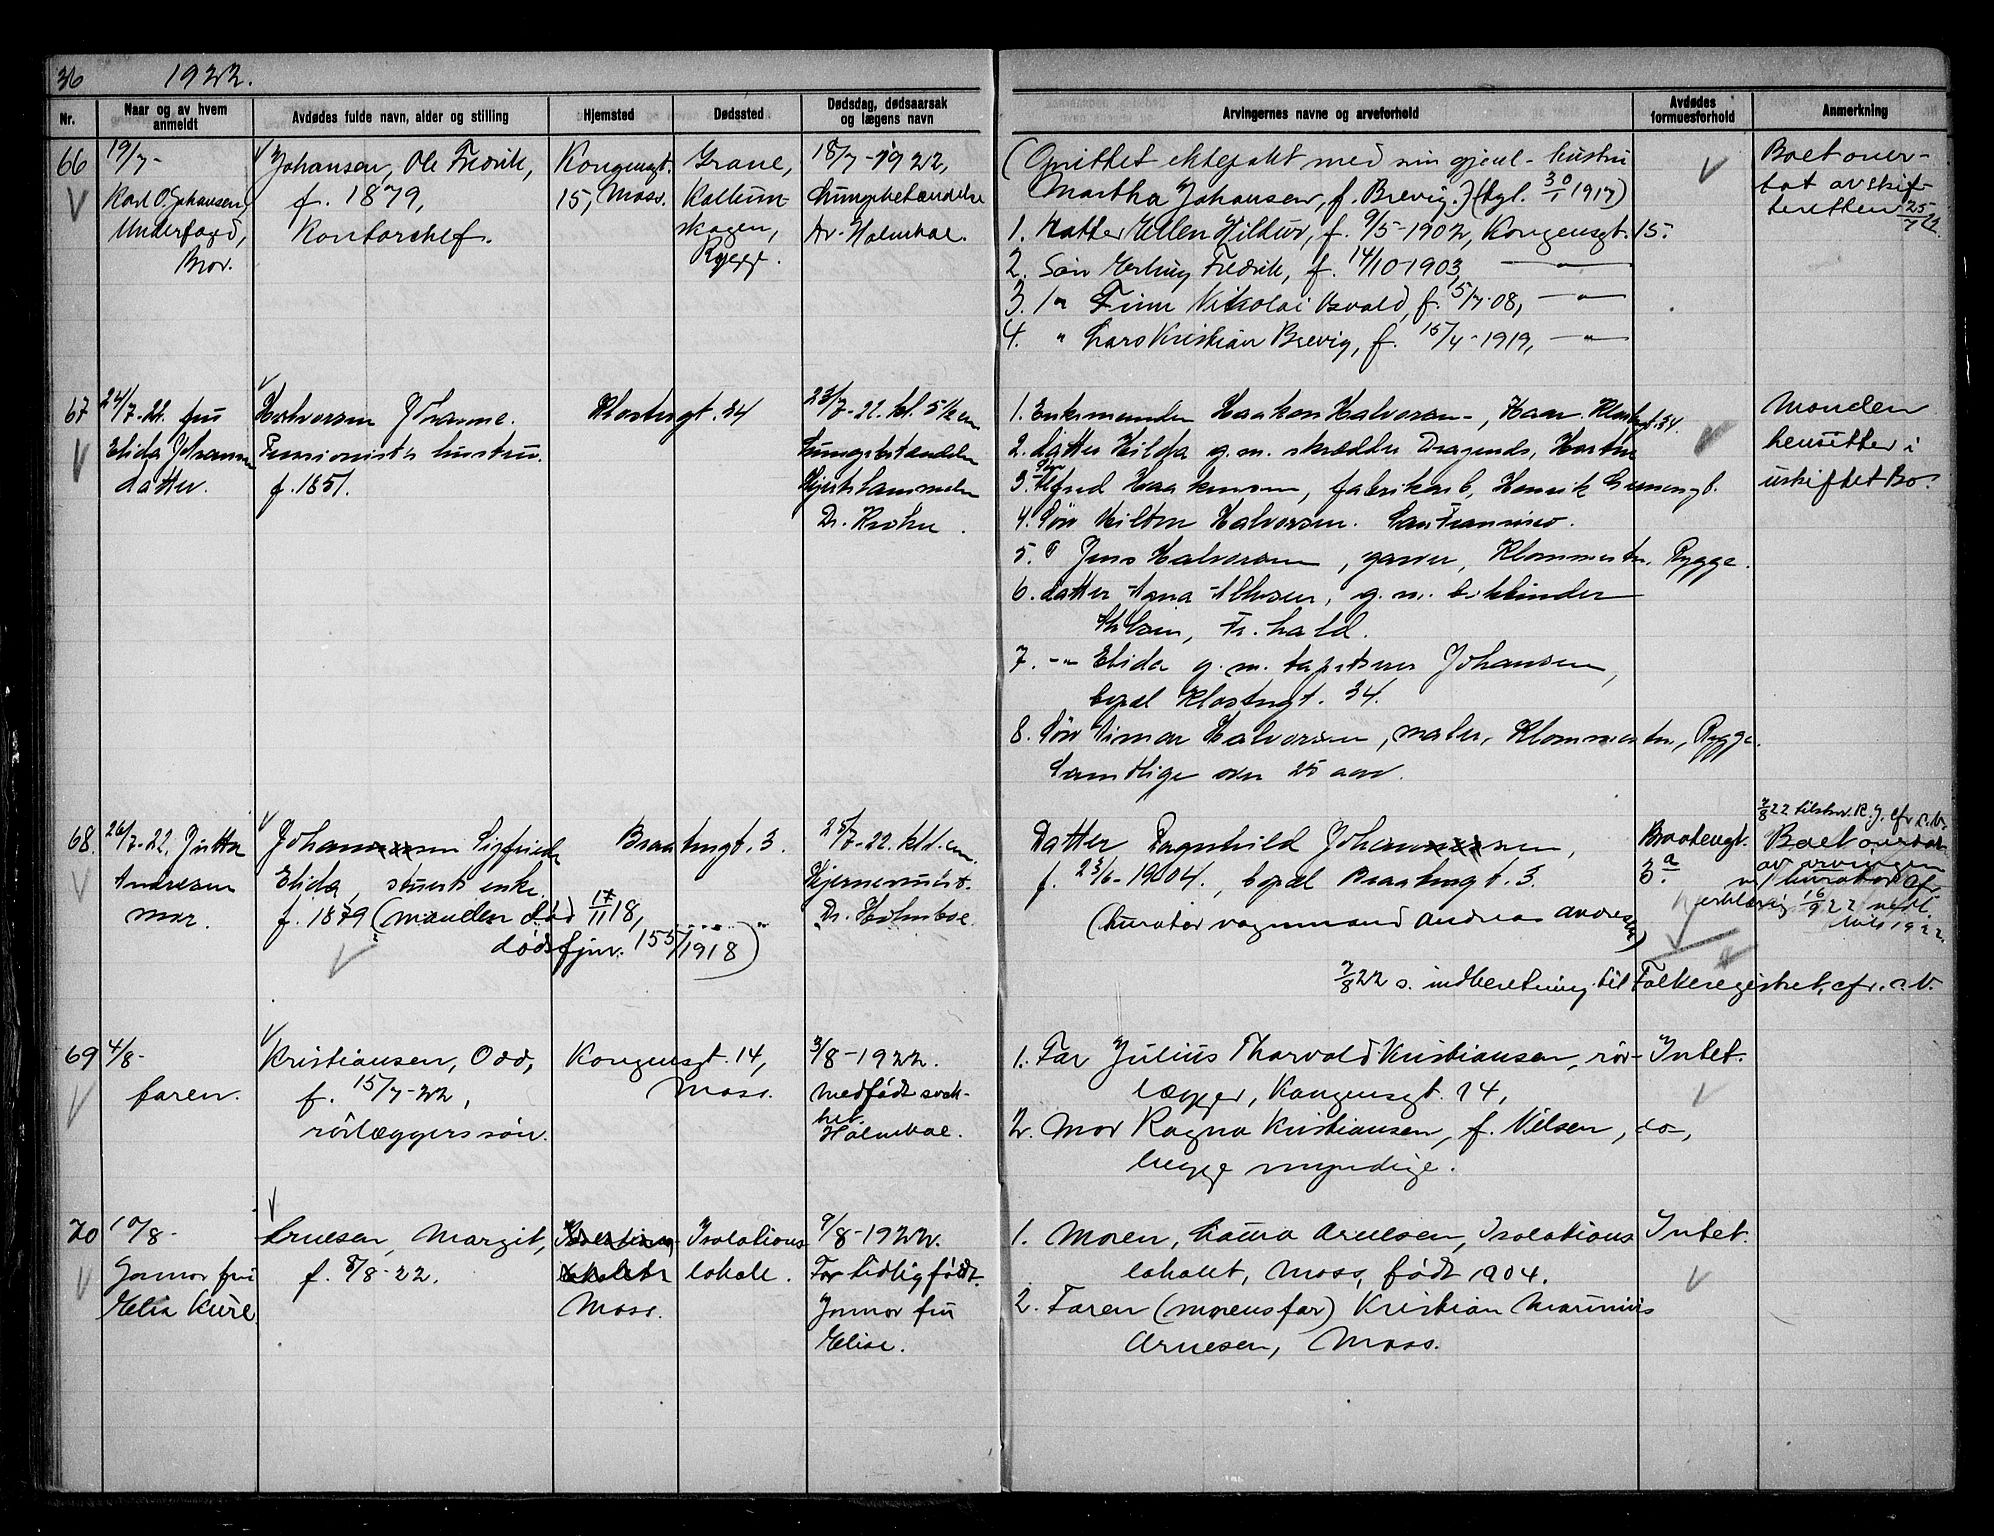 36 1922.
Nr.
Naar og av hvem anmeldt
Avdødes fulde navn, alder og stilling
Hjemsted
Dødssted
Dødsdag, dødsaarsak og lægens navn
Arvingernes navne og arveforhold
Avdødes formuesforhold
Anmerkning
66
19/7-
Karl O. Johansen,
Underfogd,
Bror.
Johansen, Ole Fredrik,
f. 1879,
Kontorchef.
Kongensgt.
15, Moss.
Grane,
Kallum-
skogen,
Rygge.
18/7-1922,
Lungebetændelse
Dr. Holmboe.
(Oprettet ektepakt med sin gjenl. hustru
Martha Johansen, f. Brevig.) (tgl. 30/1 1917)
1. Datter Ellen Hildur, f. 9/5-1902, Kongensgt. 15.
2. Søn Erling Fredrik, f. 14/10 1903, — " —
3. " Finn Nikolai Osvald, f. 5/7-08, — " —
4. " Lars Kristian Brevig, f. 15/4-1919, — " —
Boet over-
tat av skif-
teretten 25/7 22.
67
24/7-22. fru
Elida Johansen
datter.
Halvorsen Johanne.
Pensionists hustru.
f. 1851.
Klostergt. 34
23/7-22. kl. 5 1/2 em
Lungebetændelse
Hjertelammelse
Dr. Krohn.
1. Enkemanden Haakon Halvorsen, Haan. Klostergt. 34.
2. datter Hilda g.m. skrædder Dragends, Horten
3. Søn Alfred Haakensen, fabrikarb, Henrik Gernersgt.
4. Søn Milton Halvorsen. San Francisco.
5. " Jens Halvorsen, garver, Klommesten, Rygge.
6. datter Agna Ahlsen, g.m. bokbinder
Ahlsen, Fr.hald.
7. -"- Elida g.m. tapetserer Johansen,
bopæl Klostergt. 34.
8. Søn Einar Halvorsen, maler, Klommesten, Rygge.
Samtlige over 25 aar.
Manden
hensitter i
uskiftet Bo.
68.
26/7-22. Jutta
Andresen
mor.
Johannessen Sigfride
Elida, stuerts enke.
f. 1879 (manden død 17/11 18,
dødsfjnr. 155/1918)
Braatengt. 3.
25/7-22. kl. 1. em.
Hjernebetænd.
Dr. Holmboe
Datter Ragnhild Johannessen,
f. 23/6-1904., bopæl Braatengt. 3.
(kurator vognmand Andreas Andresen)
7/8 22 s. indberetning til Folkeregistret, cfr. s.V.
Braatengt.
3.a
7/8 22 tilskr. R.J. cfr s.V.
Boet overtat
av arvingen
m/ kurator cfr
erklæring 16/9 22 vedl
1922.
69
4/8-
faren.
Kristiansen, Odd,
f. 15/7-22,
rørlæggers søn.
Kongensgt. 14,
Moss.
3/8-1922.
Medfødt svak-
het.
Holmboe.
1. Far Julius Thorvald Kristiansen, rør-
lægger, Kongensgt. 14,
2. Mor Ragna Kristiansen, f. Nilsen, do,
begge myndige.
Intet.
70
10/8-
Jormor fru
Elise Kure
Arnesen, Margit,
f. 8/8-22.
Isolations
lokalet
Moss.
Isolations
lokale.
9/8-1922.
For tidlig født.
Jormor fru
Elise.
1. Moren, Laura Arnesen, Isolations
lokalet, Moss, født 1904.
2. Faren (morens far) Kristian Marinius
Arnesen, Moss.
Intet.